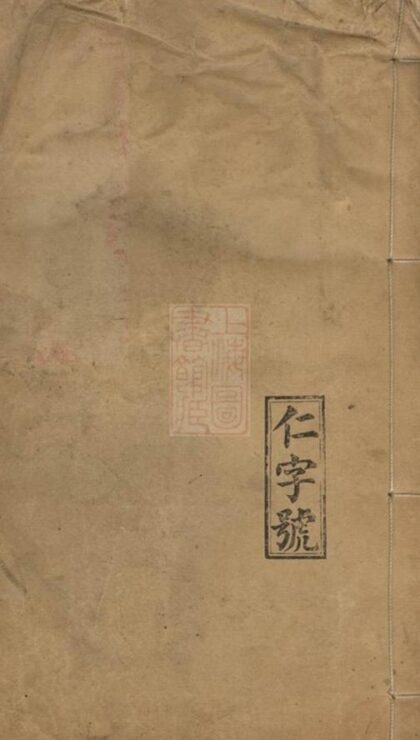 仁字號
上海圖
書館藏